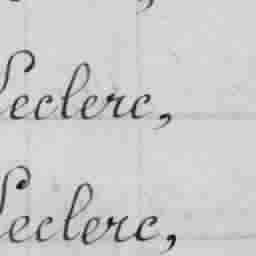 Leclerc,
Leclerc,